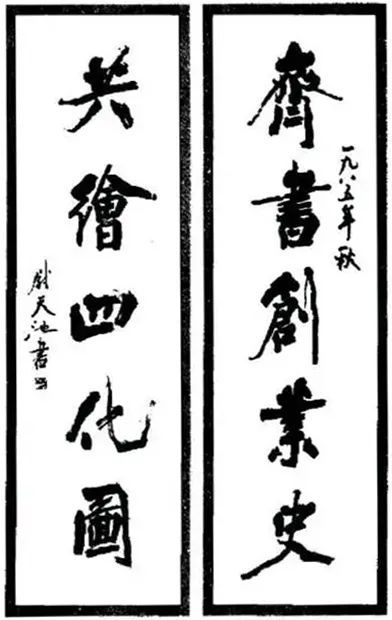 齊書創業史
一九八五年秋
共繪四化圖
尉天池書